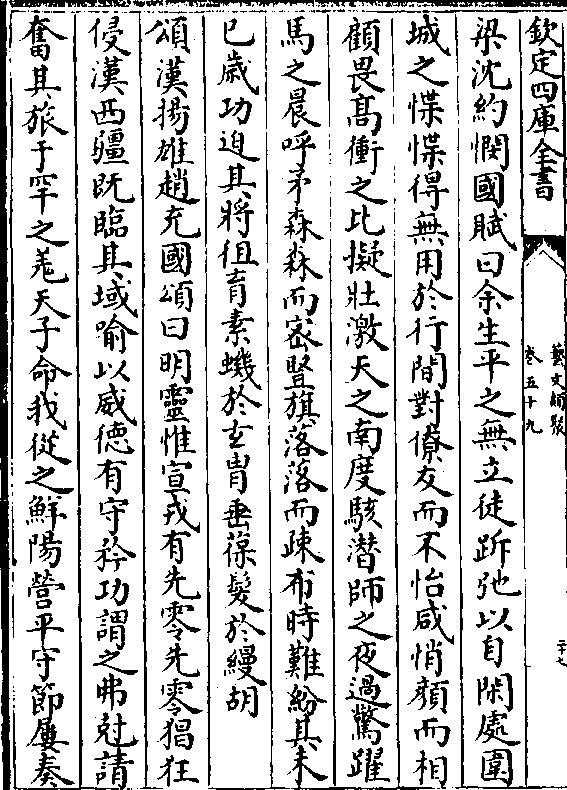 欽定四庫全書
藝文類聚
卷五十九
二十七
梁沈約憫國賦曰余生平之無立徒跅弛以自閑處圍
城之惵惵得無用於行間對僚友而不怡咸悄顔而相
顧畏髙衝之比擬壯激天之南度駭潜師之夜過驚躍
馬之晨呼矛森森而宻豎旗落落而疎布時難紛其未
已歲功迫其將徂育素蟣於玄胄垂葆髮於縵胡
頌漢揚雄趙充國頌曰明靈惟宣戎有先零先零猖狂
侵漢西疆既臨其域喻以威德有守矜功謂之弗尅請
奮其旅于罕之羌天子命我從之鮮陽營平守節屢奏